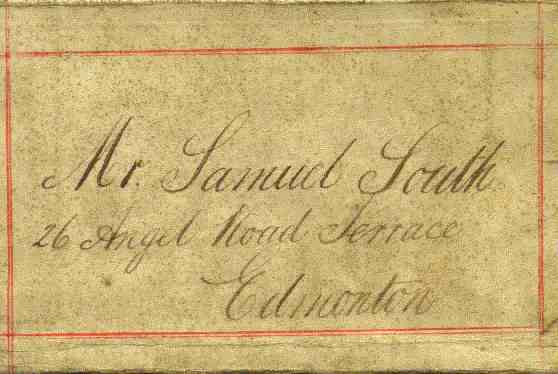 Mr. Samuel South
26 Angel Road Terrace
Edmonton